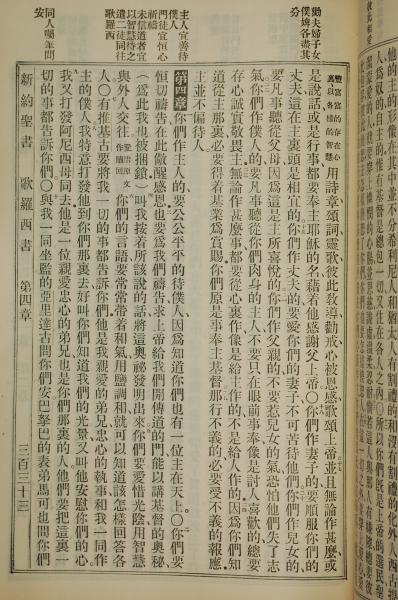 他主的形像在其中並不分希利尼人和猶太人有割禮的和沒有割禮的化外人西古提
勸夫婦子女
僕婢各盡其
分
主人宜善待
僕人
門徒宜恒心
祈禱
未信道者宜
以智慧待之
遣二徒同往
歌羅西
同人囑筆問
安
豐豐富富的存在心裏以各樣的智慧用詩章頌詞靈歌彼此教導勸戒心被恩感歌頌上帝並且無論作甚麼或
是說話或是行事都要奉主耶穌的名藉着他感謝父上帝〇你們作妻子的要順服你們的
丈夫這在主裏頭是相宜的你們作丈夫的要愛你們的妻子不可苦待他們你們作兒女的
要凡事聽從父母因爲這是主所喜悅的你們作父親的不要惹兒女的氣恐怕他們失了志
氣你們作僕人的要凡事聽從你們肉身的主人不要只在眼前事奉像是討人喜歡的總要
存心誠實敬畏主無論作甚麼事都要從心裏作像是給主作的不是給人作的因爲你們知
道從主那裏必要得着基業爲賞賜你們原是事奉主基督那行不義的必要受不義的報應
主並不偏待人
第四章你們作主人的要公公平平的待僕人因爲知道你們也有一位主在天上〇你們要
恒切禱告在此儆醒感恩也要爲我們禱告求上帝給我們開傳道的門能以講基督的奧秘
（爲此我也被捆鎖）叫我按着所該說的話將這奧秘發明出來你們要愛惜光陰用智慧
與外人交往愛惜原文作贖回你們的言語要常常帶着和氣用鹽調和就可以知道該怎樣回答各
人〇有推基古要將我一切的事都告訴你們他是我親愛的弟兄忠心的執事和我一同作
主的僕人我特意打發他到你們那裏去好叫你們知道我們的光景又叫他安慰你們的心
我又打發阿尼西母同去他是一位親愛忠心的弟兄也是你們那裏的人他們要把這裏一
切的事都告訴你們〇與我一同坐監的亞里達古問你們安巴拏巴的表弟馬可也問你們
新約聖書 歌羅西書 第四章 三百三十三